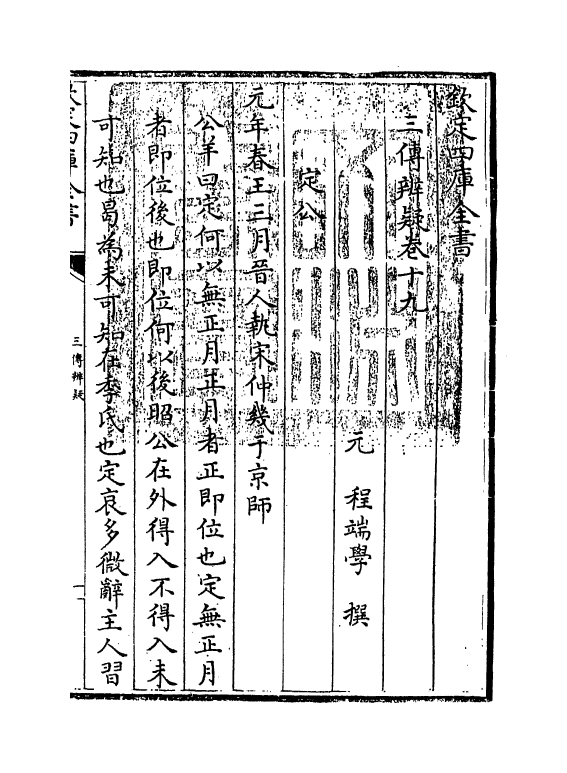 欽定四庫全書
三傳辨疑卷十九
元 程端學 撰
定公
元年春王三月晉人執宋仲幾于京師
公羊曰定何以無正月正月者正即位也定無正月
者即位後也即位何以後昭公在外得入不得入未
可知也曷為未可知在季氏也定哀多微辭主人習
欽定四庫全書
三傳辨疑
一